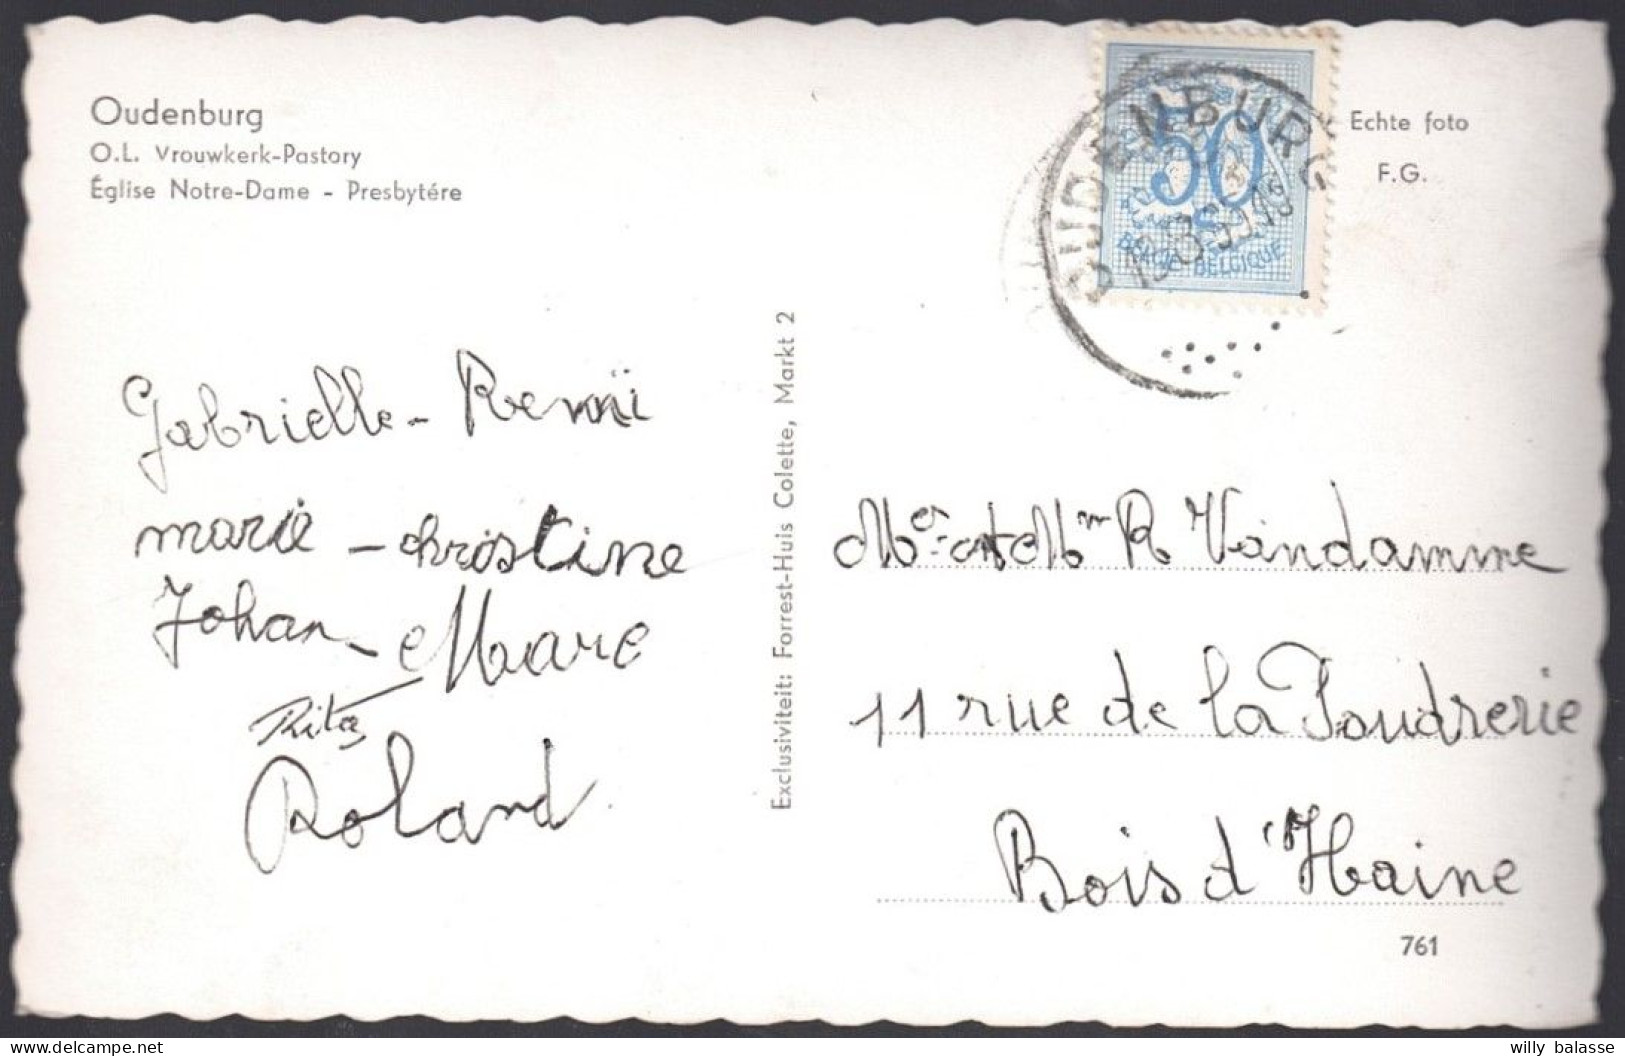 Oudenburg
O.L. Vrouwkerk-Pastory
Église Notre-Dame - Presbytére
Echte foto
F.G.
OUDENBURG
50
BELGIE-BELGIQUE
Gabrielle - Remi
marie - christine
Johan - Marc
Rita
Roland
Exclusiviteit: Forrest-Huis Colette, Markt 2
Mr et Mm R Vandamme
11 rue de la Poudrerie
Bois d'Haine
761
willy balasse